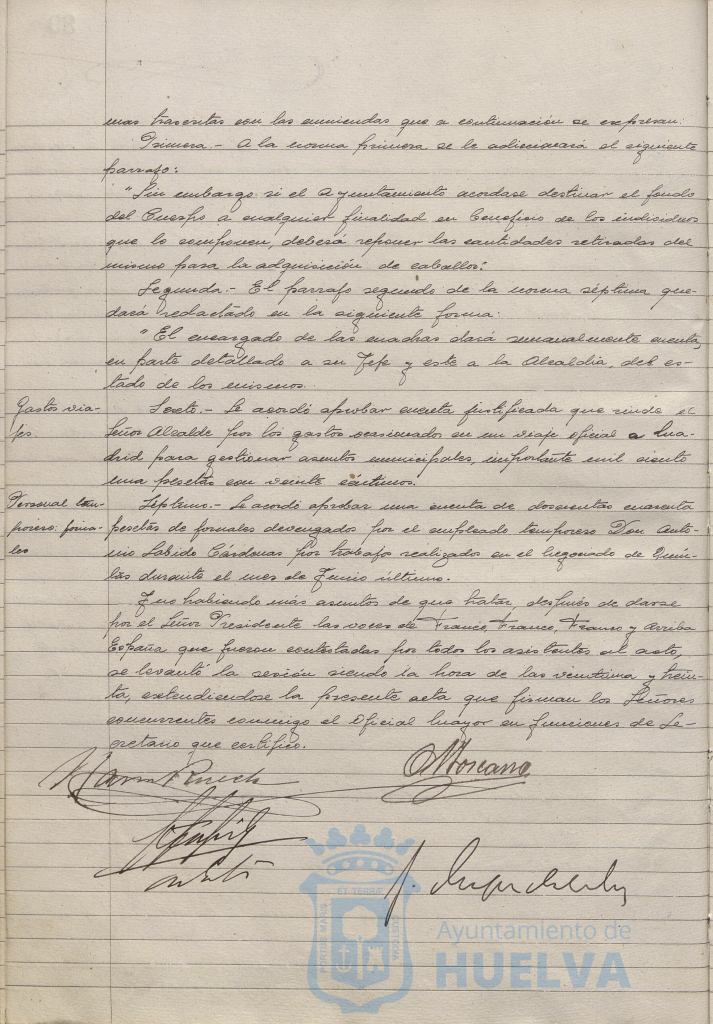 mas trascritas con las enmiendas que a continuación se expresan:
Primera.- A la norma primera se le adicionará el siguiente
parrafo:
"Sin embargo si el Ayuntamiento acordase destinar el fondo
del Cuerpo a cualquier finalidad en beneficio de los individuos
que lo componen, deberá reponer las cantidades retiradas del
mismo para la adquisición de caballos."
Segunda.- El parrafo segundo de la norma séptima que-
dará redactado en la siguiente forma:
"El encargado de las cuadras dará semanalmente cuenta,
en parte detallado a su Jefe y este a la Alcaldía, del es-
tado de los mismos.
Gastos via-
jes.
Sexto.- Se acordó aprobar cuenta justificada que rinde el
Señor Alcalde por los gastos ocasionados en un viaje oficial a Ma-
drid para gestionar asuntos municipales, importante mil ciento
una pesetas con veinte céntimos.
Personal tem-
porero: jorna-
les
Séptimo.- Se acordó aprobar una cuenta de doscientas cuarenta
pesetas de jornales devengados por el empleado temporero Don Anto-
nio Sabido Cárdenas por trabajos realizados en el Negociado de Quin-
tas durante el mes de Junio último.
Y no habiendo más asuntos de que tratar, después de darse
por el Señor Presidente las voces de Franco, Franco, Franco y Arriba
España que fueron contestadas por todos los asistentes al acto,
se levantó la sesión siendo la hora de las veintiuna y trein-
ta, extendiendose la presente acta que firman los Señores
concurrentes conmigo el Oficial Mayor en funciones de Se-
cretario que certifico.
Moscano
PORTUS MARIS
ET TERRAE
CUSTODIA
Ayuntamiento de
HUELVA